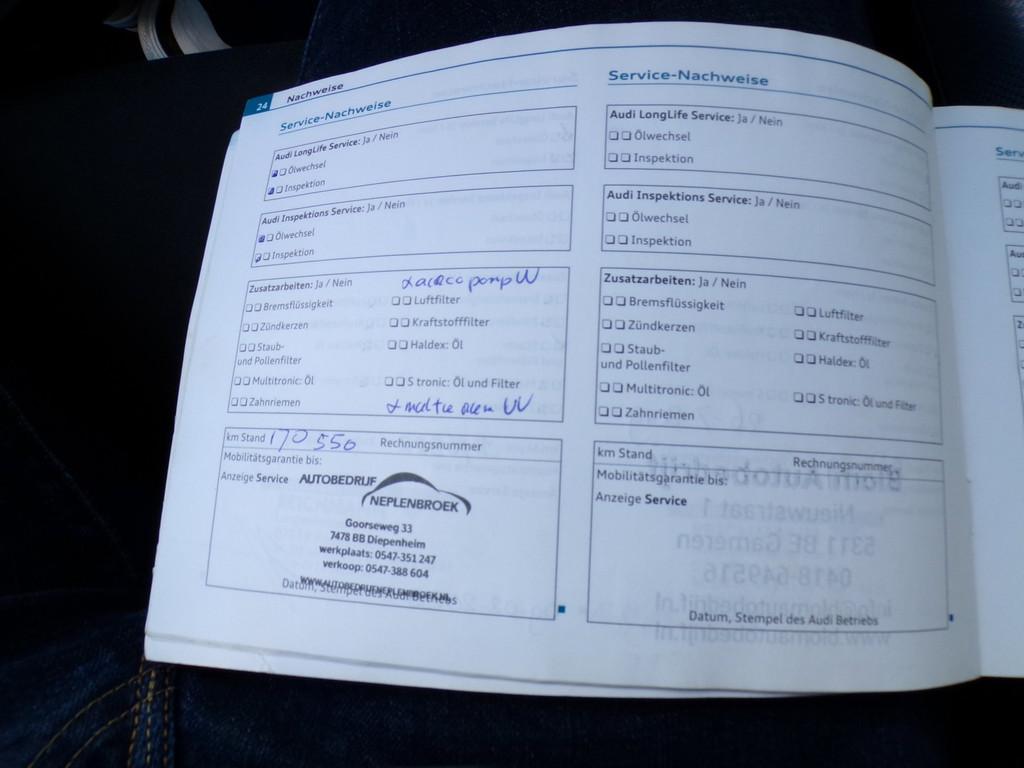 24 Nachweise
Service-Nachweise
Audi LongLife Service: Ja / Nein
Ölwechsel
Inspektion
Audi Inspektions Service: Ja / Nein
Ölwechsel
Inspektion
Zusatzarbeiten: Ja / Nein
Bremsflüssigkeit
Luftfilter
Zündkerzen
Kraftstofffilter
Staub-
und Pollenfilter
Haldex: Öl
Multitronic: Öl
S tronic: Öl und Filter
Zahnriemen
km Stand 170 550 Rechnungsnummer
Mobilitätsgarantie bis:
Anzeige Service
AUTOBEDRIJF
NEPLENBROEK
Goorseweg 33
7478 BB Diepenheim
werkplaats: 0547-351 247
verkoop: 0547-388 604
WWW.AUTOBEDRIJFNEPLENBROEK.NL
Datum, Stempel des Audi Betriebs
Service-Nachweise
Audi LongLife Service: Ja / Nein
Ölwechsel
Inspektion
Audi Inspektions Service: Ja / Nein
Ölwechsel
Inspektion
Zusatzarbeiten: Ja / Nein
Bremsflüssigkeit
Luftfilter
Zündkerzen
Kraftstofffilter
Staub-
und Pollenfilter
Haldex: Öl
Multitronic: Öl
S tronic: Öl und Filter
Zahnriemen
km Stand
Rechnungsnummer
Mobilitätsgarantie bis:
Anzeige Service
Datum, Stempel des Audi Betriebs